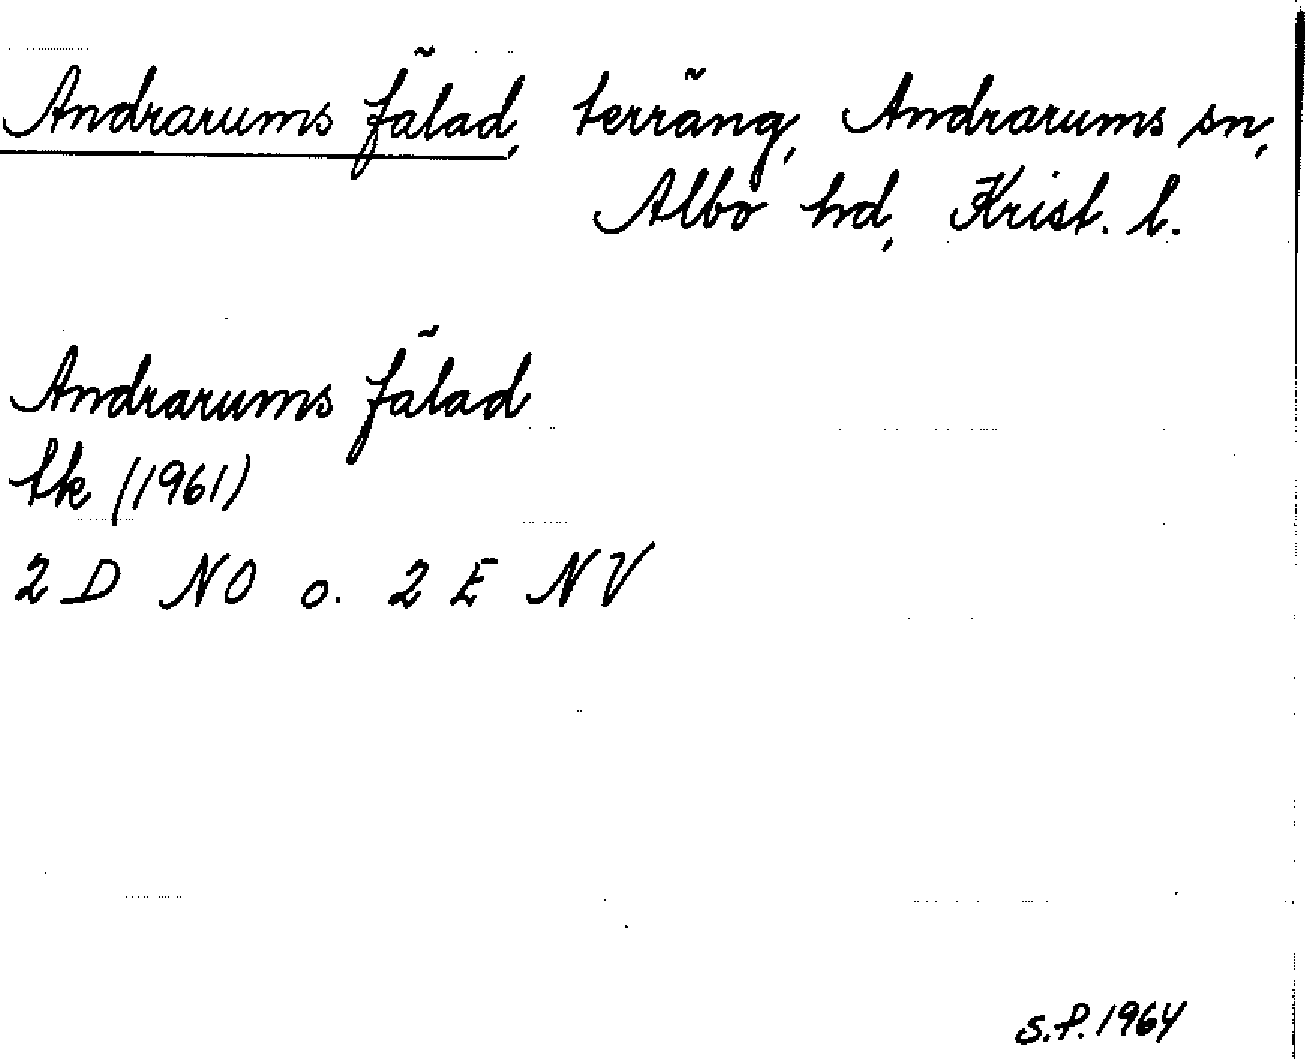 Andrarums fälad, terräng, Andrarums sn,
Albo hd, Krist. l.
Andrarums fälad
tk (1961)
2 D NO o. 2 E NV
S.F. 1964